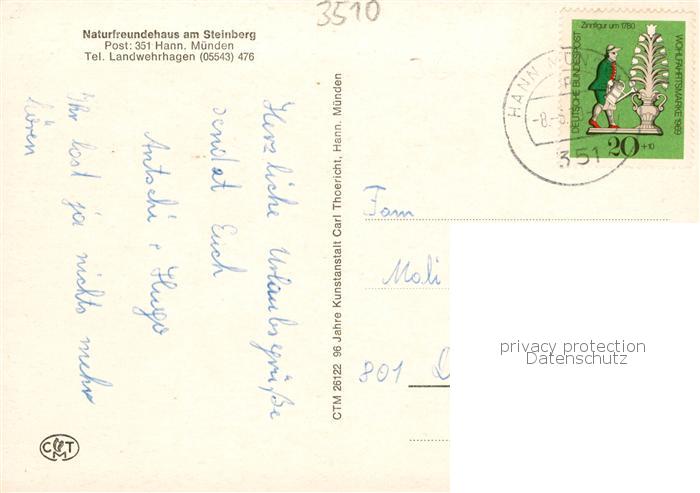 3510
Naturfreundehaus am Steinberg
Post: 351 Hann. Münden
Tel. Landwehrhagen (05543) 476
Herzliche Urlaubsgrüße
Euch
+ Hugo
Ihr last ja nichts mehr
hören
CTM 26122 96 Jahre Kunstanstalt Carl Thoericht, Hann. Münden
CTM
Zinnfigur um 1780
DEUTSCHE BUNDESPOST
WOHLFAHRTSMARKE 1969
20 +10
HANN. MÜN
-8.-5.
351
Fam
Moli
801 D
privacy protection
Datenschutz